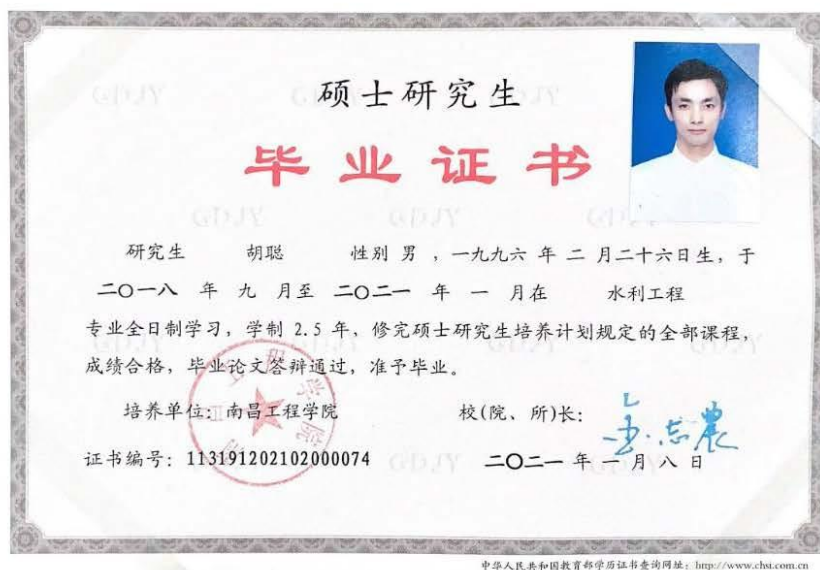 硕士研究生
毕业证书
研究生 胡聪 性别 男 ，一九九六 年 二 月二十六日生，于
二〇一八 年 九 月至 二〇二一 年 一 月在 水利工程
专业全日制学习，学制 2.5 年，修完硕士研究生培养计划规定的全部课程，
成绩合格，毕业论文答辩通过，准予毕业。
培养单位：南昌工程学院 校(院、所)长：
证书编号：113191202102000074 二〇二一 年 一 月 八 日
中华人民共和国教育部学历证书查询网址：http://www.chsi.com.cn